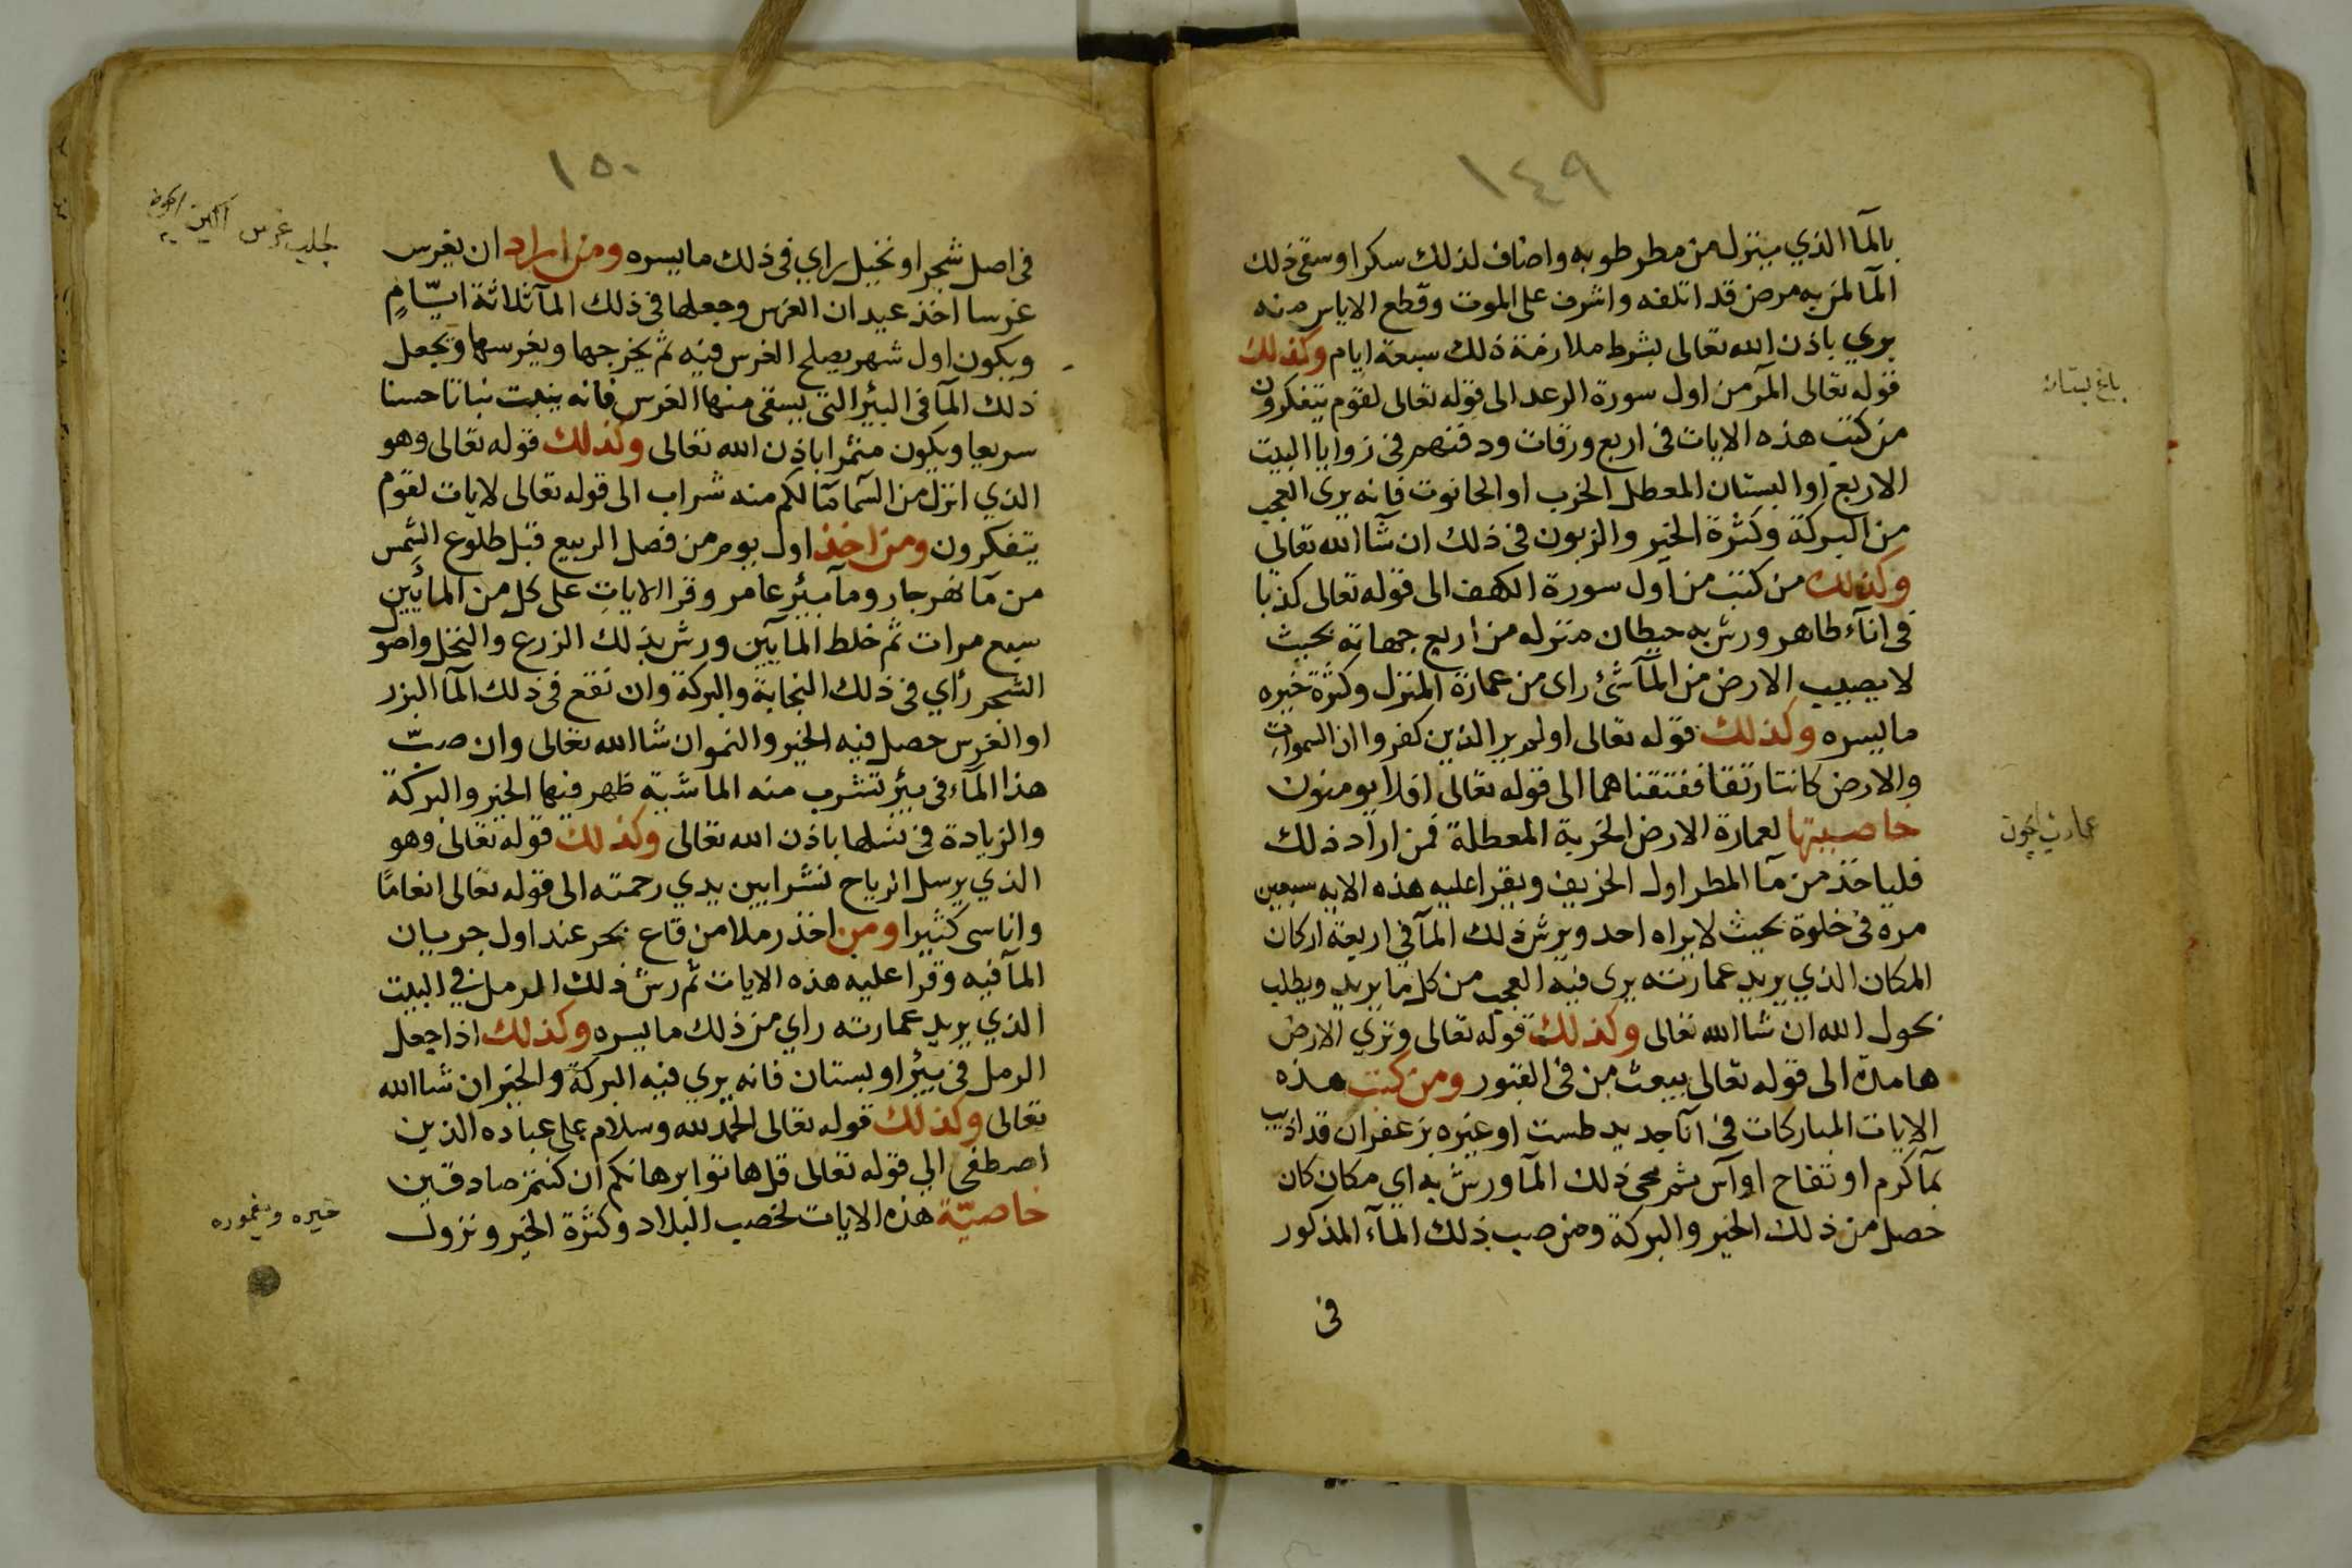 ١٤٩
بالمآ الذي ينزل من مطر طوبه واضاف لذلك سكرا وسقى ذلك
المآ لمن به مرض قد اتلفه واشرف على الموت وقطع الاياس منه
بري باذن الله تعالى بشرط ملازمة ذلك سبعة ايام وكذلك
قوله تعالى المر من اول سورة الرعد الى قوله تعالى لقوم يتفكرون
باغ بستان
من كتب هذه الايات في اربع ورقات ودفنهم في زوايا البيت
الاربع او البستان المعطل الخرب او الحانوت فانه يرى العجب
من البركة وكثرة الخير والزبون في ذلك ان شآ الله تعالى
وكذلك من كتب من اول سورة الكهف الى قوله تعالى كذبا
في انآء طاهر ورش به حيطان منزله من اربع جهاته بحيث
لا يصيب الارض من المآ شئ راى من عمارة المنزل وكثرة خيره
ما يسره وكذلك قوله تعالى اولم ير الذين كفروا ان السموات
والارض كانتا رتقا ففتقناهما الى قوله تعالى افلا يومنون
خاصيتها لعمارة الارض الخربة المعطلة فمن اراد ذلك
عمارت ايچون
فلياخذ من مآ المطر اول الخريف ويقرا عليه هذه الايه سبعين
مرة في خلوة بحيث لا يراه احد ويرش ذلك المآ في اربعة اركان
المكان الذي يريد عمارته يرى فيه العجب من كل ما يريد ويطلب
بحول الله ان شا الله تعالى وكذلك قوله تعالى وتري الارض
هامدة الى قوله تعالى يبعث من في القبور ومن كتب هذه
الايات المباركات في انآ جديد طست او غيره بزعفران قد اذيب
بمآ كرم او تفاح او آس ثم محى ذلك المآ ورش به اي مكان كان
حصل من ذلك الخير والبركة ومن صب ذلك المآء المذكور
فى
١٥٠
في اصل شجر او نخيل راي في ذلك ما يسره ومن اراد ان يغرس
طلب غرس
غرسا اخذ عيدان الغرس وجعلها في ذلك المآ ثلاثة ايّامٍ
ويكون اول شهر يصلح الغرس فيه ثم يخرجها ويغرسها ويجعل
ذلك المآ في البئر التي يسقى منها الغرس فانه ينبت نباتا حسنا
سريعا ويكون مثمرا باذن الله تعالى وكذلك قوله تعالى وهو
الذي انزل من السما مآ لكم منه شراب الى قوله تعالى لايات لقوم
يتفكرون ومن اخذ اول يوم من فصل الربيع قبل طلوع الشمس
من مآ نهر جار ومآ بئر عامر وقرا الايات على كل من المائين
سبع مرات ثم خلط المآيين ورش بذلك الزرع والنخل واصول
الشجر رأي في ذلك النجابة والبركة وان نقع في ذلك المآ البزر
او الغرس حصل فيه الخير والنمو ان شا الله تعالى وان صبّ
هذا المآء في بئر تشرب منه الماشية ظهر فيها الخير والبركة
والزيادة في نسلها باذن الله تعالى وكذلك قوله تعالى وهو
الذي يرسل الرياح نشرا بين يدي رحمته الى قوله تعالى انعامًا
واناسى كثيرا ومن اخذ رملا من قاع بحر عند اول جريان
المآ فيه وقرا عليه هذه الايات ثم رش ذلك الرمل في البيت
الذي يريد عمارته راي من ذلك ما يسره وكذلك اذا جعل
الرمل في بئر او بستان فانه يري فيه البركة والخير ان شا الله
تعالى وكذلك قوله تعالى الحمد لله وسلام على عباده الذين
اصطفى الي قوله تعالى قل هاتوا برهانكم ان كنتم صادقين
خاصيّة هذه الايات لخصب البلاد وكثرة الخير ونزول